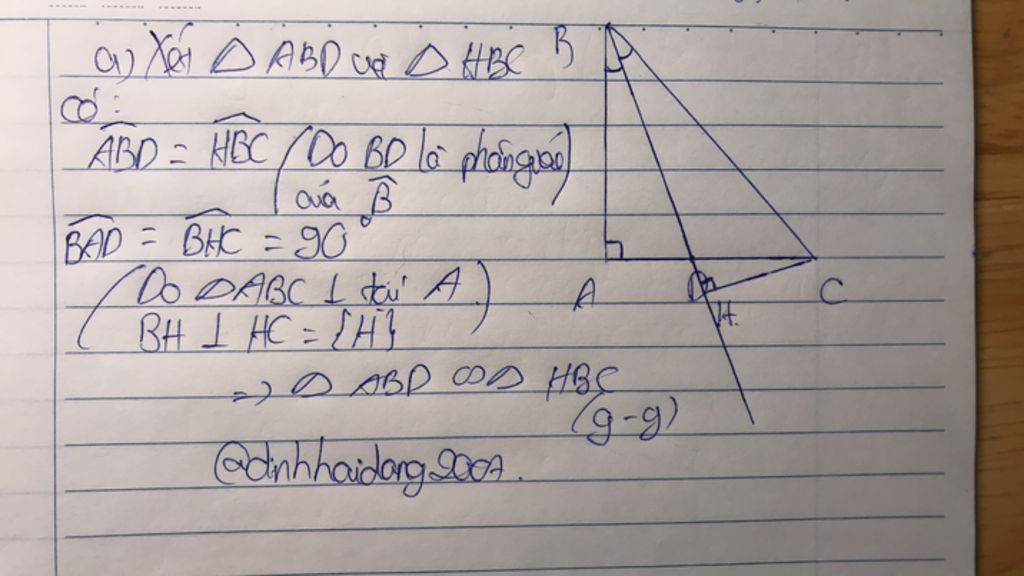 a) Xét △ ABD và △ HBC
có:
ABD = HBC (Do BD là phân giác
của B)
BAD = BHC = 90°
(Do △ABC ⊥ tại A.
BH ⊥ HC = {H})
=> △ ABD ∽ △ HBC
(g-g)
@dinhhaidang2007.
B
A
D
C
H.